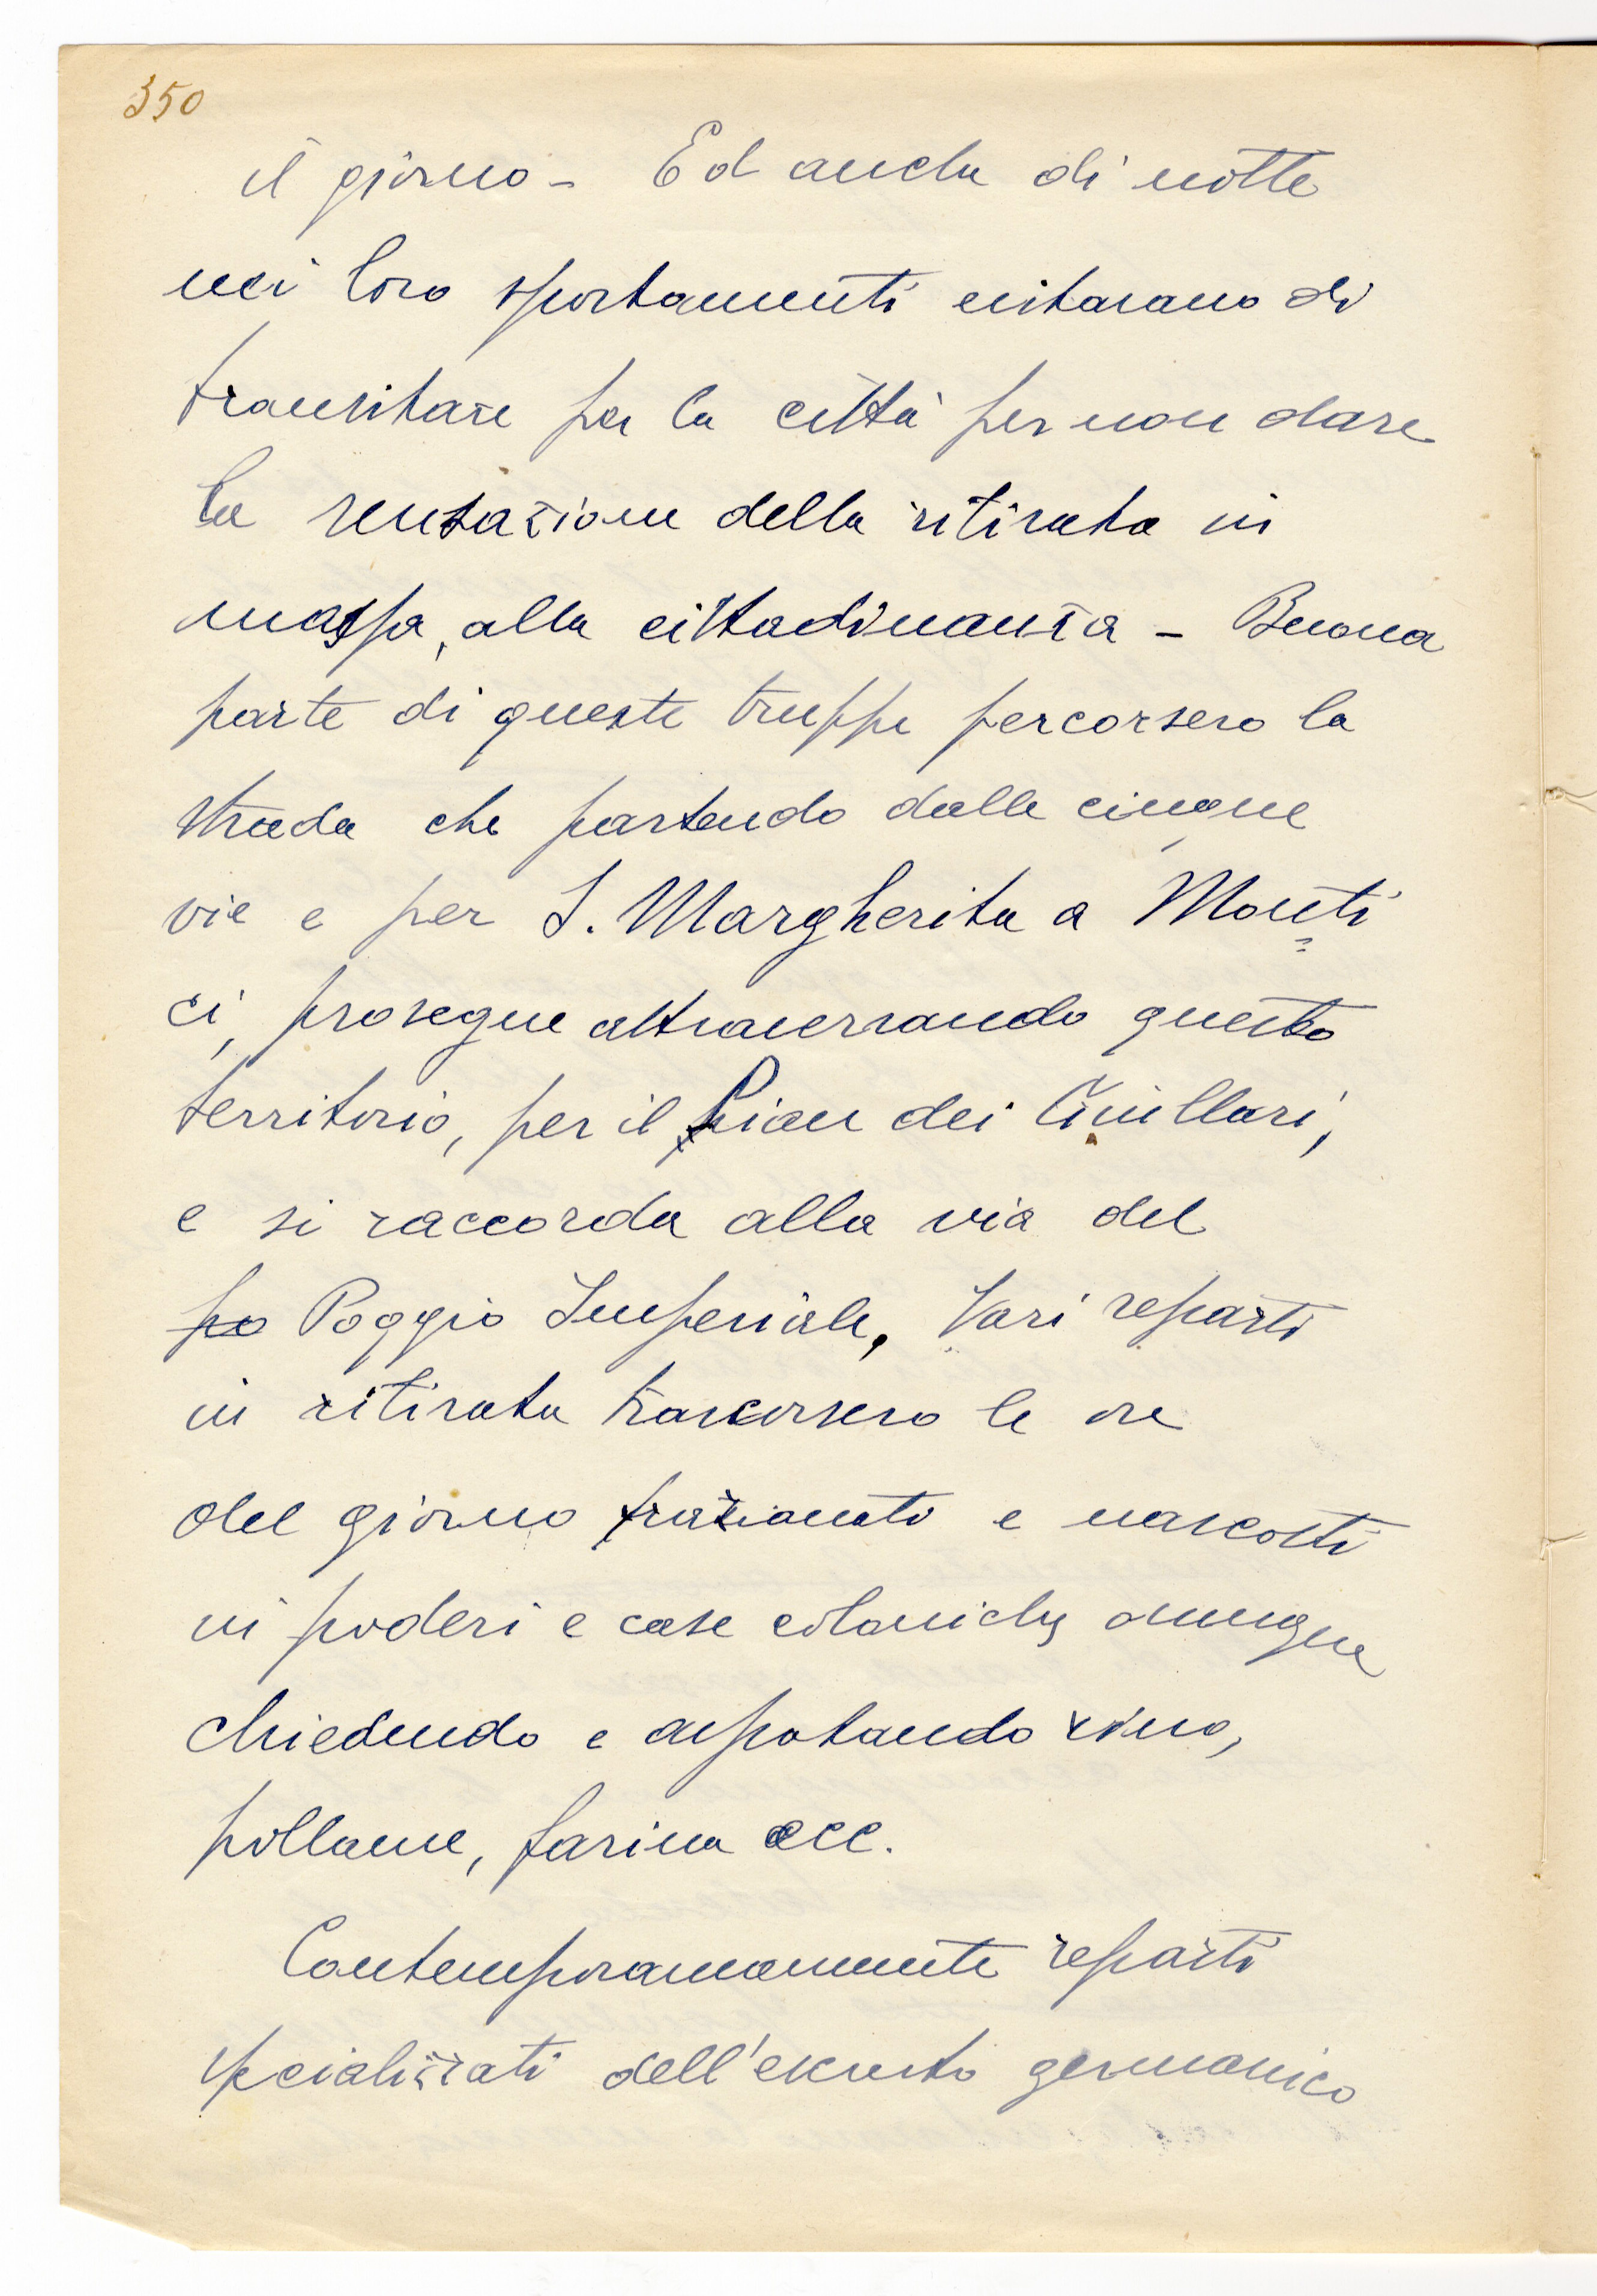 350
il giorno - Ed anche di notte
nei loro spostamenti evitarano di
transitare per la città per non dare
la sensazione della ritirata in
massa, alla cittadinanza - Buona
parte di queste truppe percorsero la
strada che partendo dalle cinque
vie e per S. Margherita a Monti
ci, prosegue attraversando questo
territorio, per il Pian dei Giullari,
e si raccorda alla via del
po Poggio Imperiale. Vari reparti
in ritirata trascorsero le ore
del giorno frazionati e nascosti
in poderi e case coloniche ovunque
chiedendo e asportando vino,
pollame, farina ecc.
Contemporaneamente reparti
specializzati dell'esercito germanico